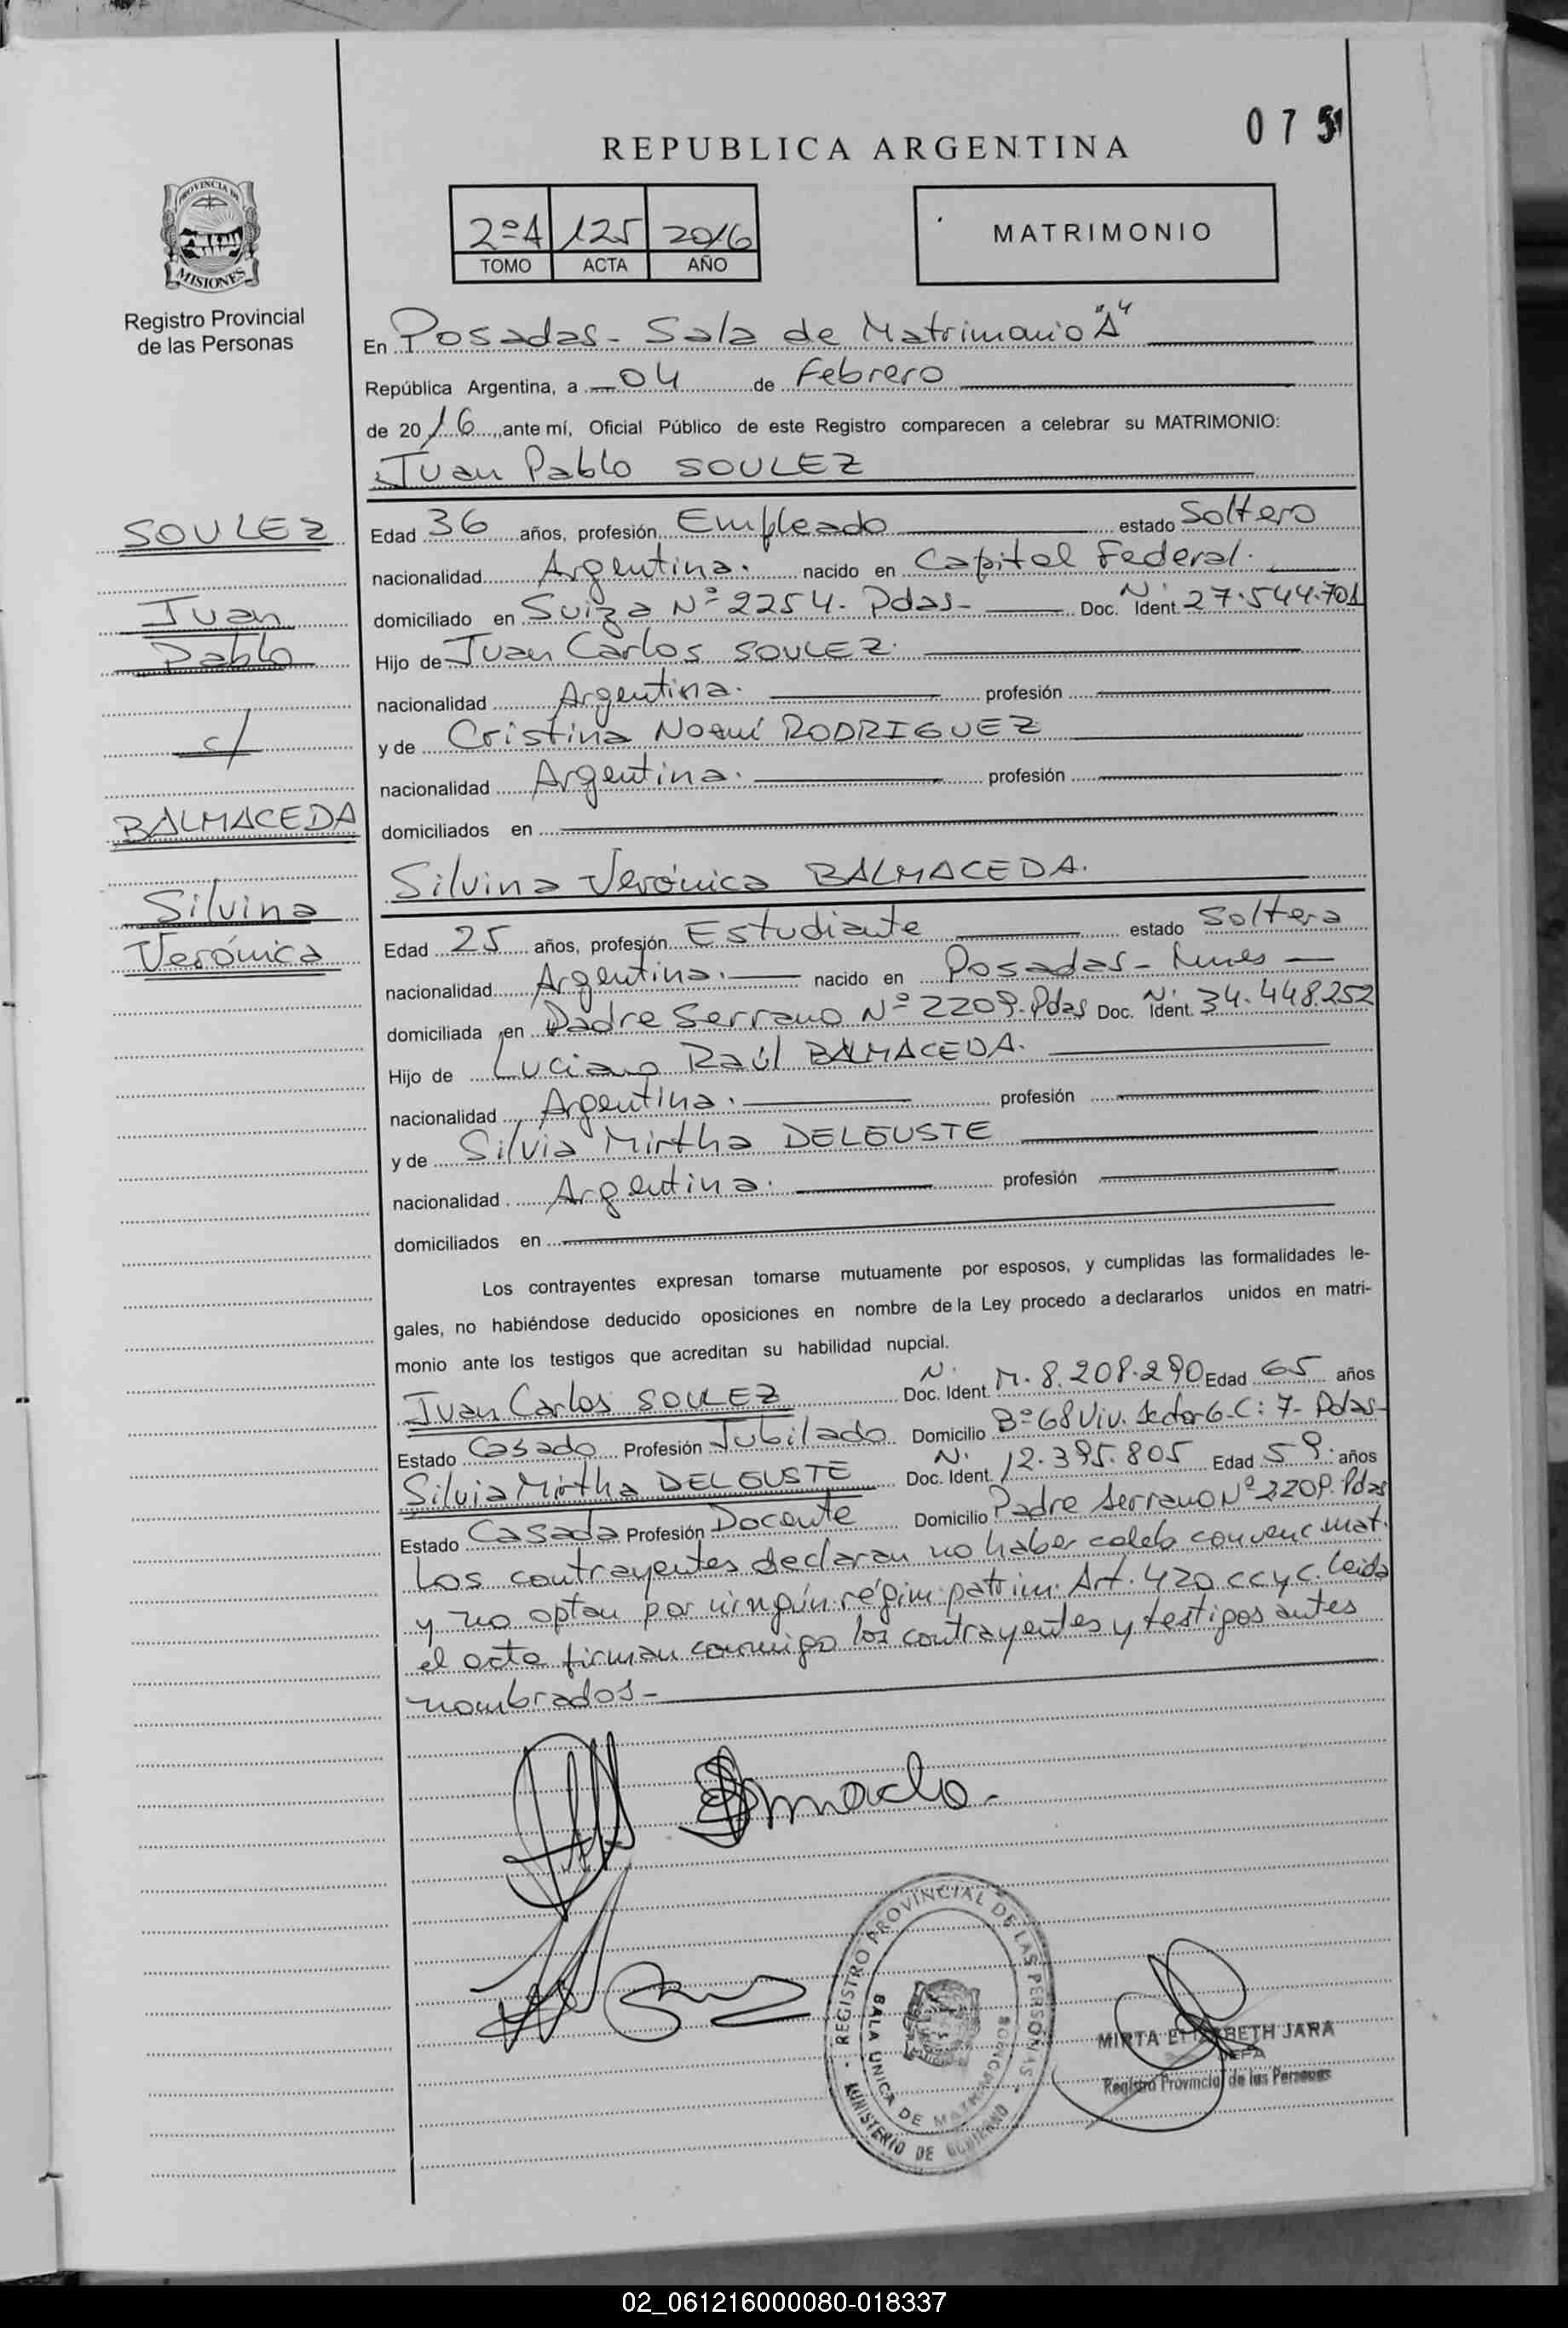 075
REPUBLICA ARGENTINA
PROVINCIA DE
MISIONES
Registro Provincial
de las Personas
2ºA 125 2016
TOMO ACTA AÑO
MATRIMONIO
En Posadas - Sala de Matrimonio "A"
República Argentina, a 04 de Febrero
de 2016, ante mí, Oficial Público de este Registro comparecen a celebrar su MATRIMONIO:
Juan Pablo SOULEZ
SOULEZ
Juan
Pablo
c/
BALMACEDA
Silvina
Verónica
Edad 36 años, profesión Empleado estado Soltero
nacionalidad Argentina. nacido en Capital Federal.
domiciliado en Suiza Nº 2254. Pdas- Doc. Ident. N. 27.544.701
Hijo de Juan Carlos SOULEZ.
nacionalidad Argentina. profesión
y de Cristina Noemí RODRIGUEZ
nacionalidad Argentina. profesión
domiciliados en
Silvina Verónica BALMACEDA.
Edad 25 años, profesión Estudiante estado Soltera
nacionalidad Argentina. nacido en Posadas -
domiciliada en Padre Serrano Nº 2209. Pdas Doc. Ident. N. 34.448.252
Hijo de Luciano Raúl BALMACEDA.
nacionalidad Argentina. profesión
y de Silvia Mirtha DELEUSTE
nacionalidad Argentina. profesión
domiciliados en
Los contrayentes expresan tomarse mutuamente por esposos, y cumplidas las formalidades le-
gales, no habiéndose deducido oposiciones en nombre de la Ley procedo a declararlos unidos en matri-
monio ante los testigos que acreditan su habilidad nupcial.
Juan Carlos SOULEZ Doc. Ident. N. M. 8.208.290 Edad 65 años
Estado Casado Profesión Jubilado Domicilio Bº 68 Viv. Sector 6-C: 7- Pdas-
Silvia Mirtha DELEUSTE Doc. Ident. N. 12.395.805 Edad 59. años
Estado Casada Profesión Docente Domicilio Padre Serrano Nº 2209. Pdas
Los contrayentes declaran no haber celeb convenc. mat.
y no optan por ningún régim. patrim. Art. 420 CCyC. Leida
el acta firman conmigo los contrayentes y testigos antes
nombrados-
REGISTRO PROVINCIAL DE LAS PERSONAS
SALA UNICA DE MATRIMONIOS
MINISTERIO DE GOBIERNO
MIRTA ELIZABETH JARA
JEFA
Registro Provincial de las Personas
02_061216000080-018337